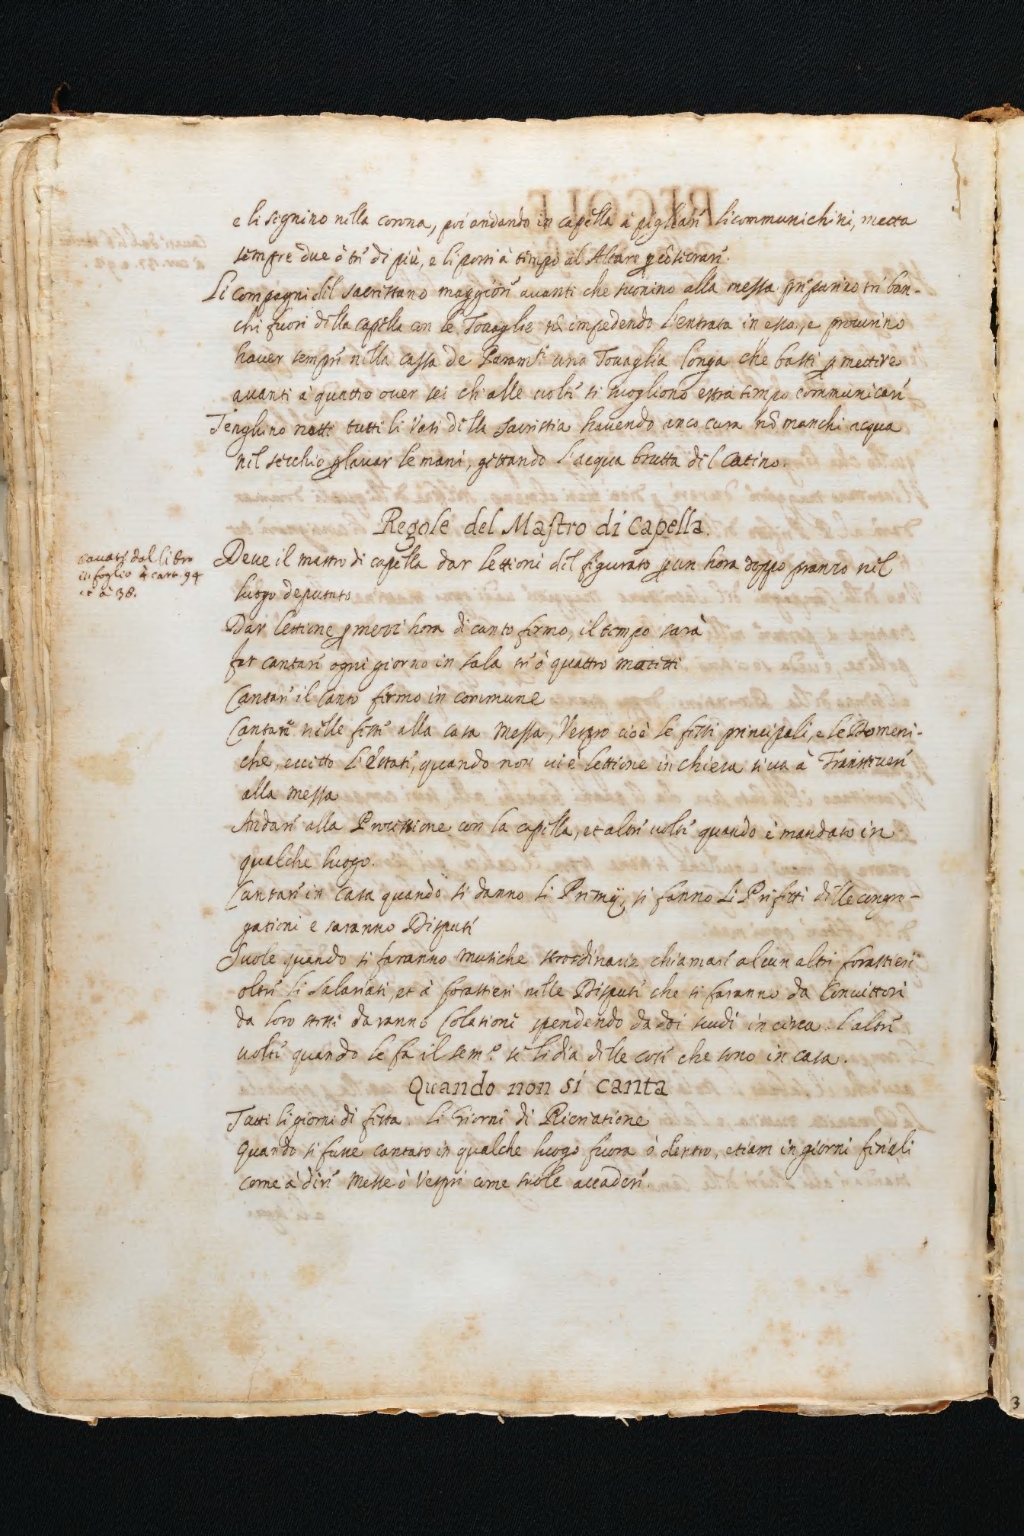 e li segnino nella corona, poi andando in capella à pigliare li communichini, metta
sempre due ò tre di più, e li porri à tempo al Altare p cōsecrare.
Li compagni del sacristano maggiore avanti che suonino alla messa preparino tre ban-
chi fuori della capella con le Tovaglie nō impedendo l'entrata in essa, e procurino
haver sempre nella cassa de Paramti una Tovaglia longa che basti p mettere
avanti à quattro over sei che alle volte si vogliono extra tempo communicare
Tenghino netti tutti li Vasi della Sacristia havendo anco cura nō manchi acqua
nel secchio p lavar le mani, gettando l'acqua brutta del Catino.
Regole del Mastro di Capella.
cavate dal libro
in foglio à cara 94
et à 38.
Deve il mastro di capella dar lettioni del figurato p un hora doppo pranzo nel
luogo deputato
Dar lettione p mezzi hora di canto fermo, il tempo sarà
far cantare ogni giorno in sala tre ò quattro motetti
Cantare il Canto fermo in commune
Cantare nelle feste alla casa Messa, Vespro cioè le feste principali, e le Domeni-
che, eccetto l'Estate, quando non vi è lettione in chiesa si va à
alla messa
Andare alla Processione con la capella, et altre volte quando è mandato in
qualche luogo.
Cantare in Casa quando si danno li Premij, si fanno li Prefetti delle congre-
gationi e saranno Dispute
Suole quando si faranno musiche straordinarie chiamare alcun altri forastieri
oltre li salariati, et à forastieri nelle Dispute che si faranno da Convittori
da loro stessi daranno Colatione spendendo da doi scudi in circa. l'altre
volte quando le fa il sem.o se li dia delle cose che sono in casa.
Quando non si canta
Tutti li giorni di festa. li Giorni di Ricreatione
Quando si fusse cantato in qualche luogo fuora ò dentro, etiam in giorni feriali
come à dire Messe ò Vespri come suole accadere.
3